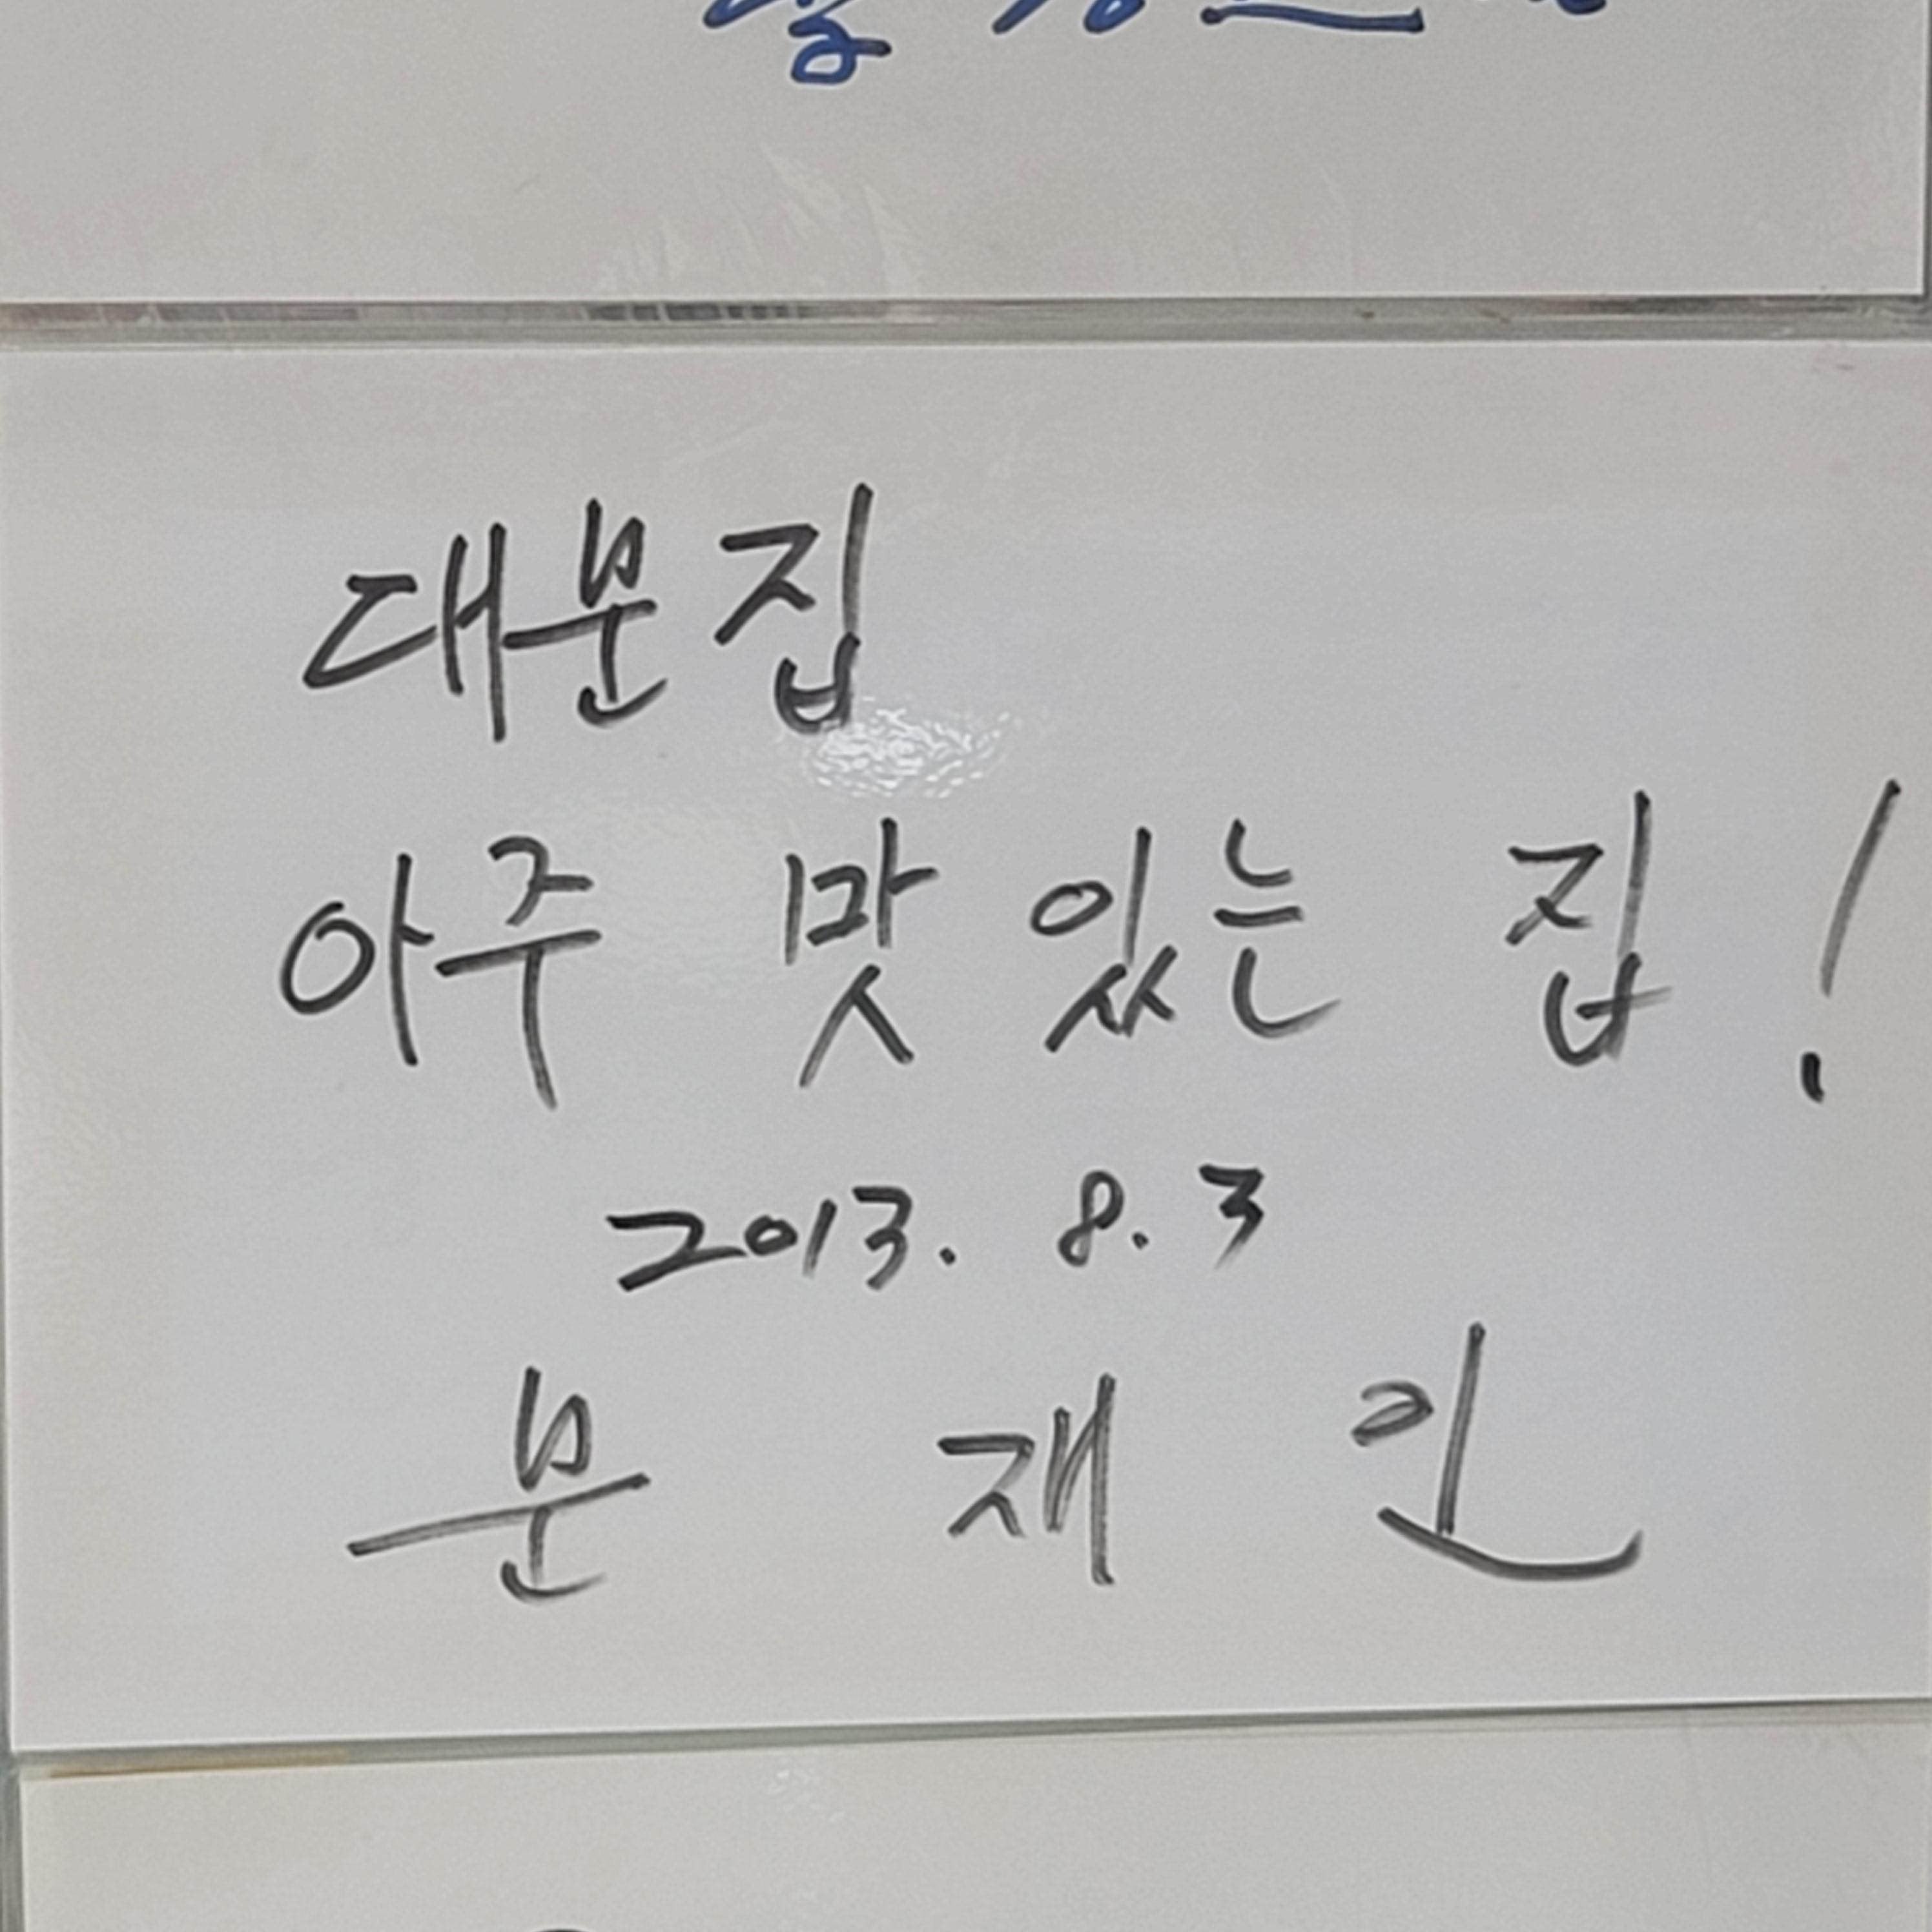 대문집
아주 맛있는 집!
2013. 8. 3
문 재 인